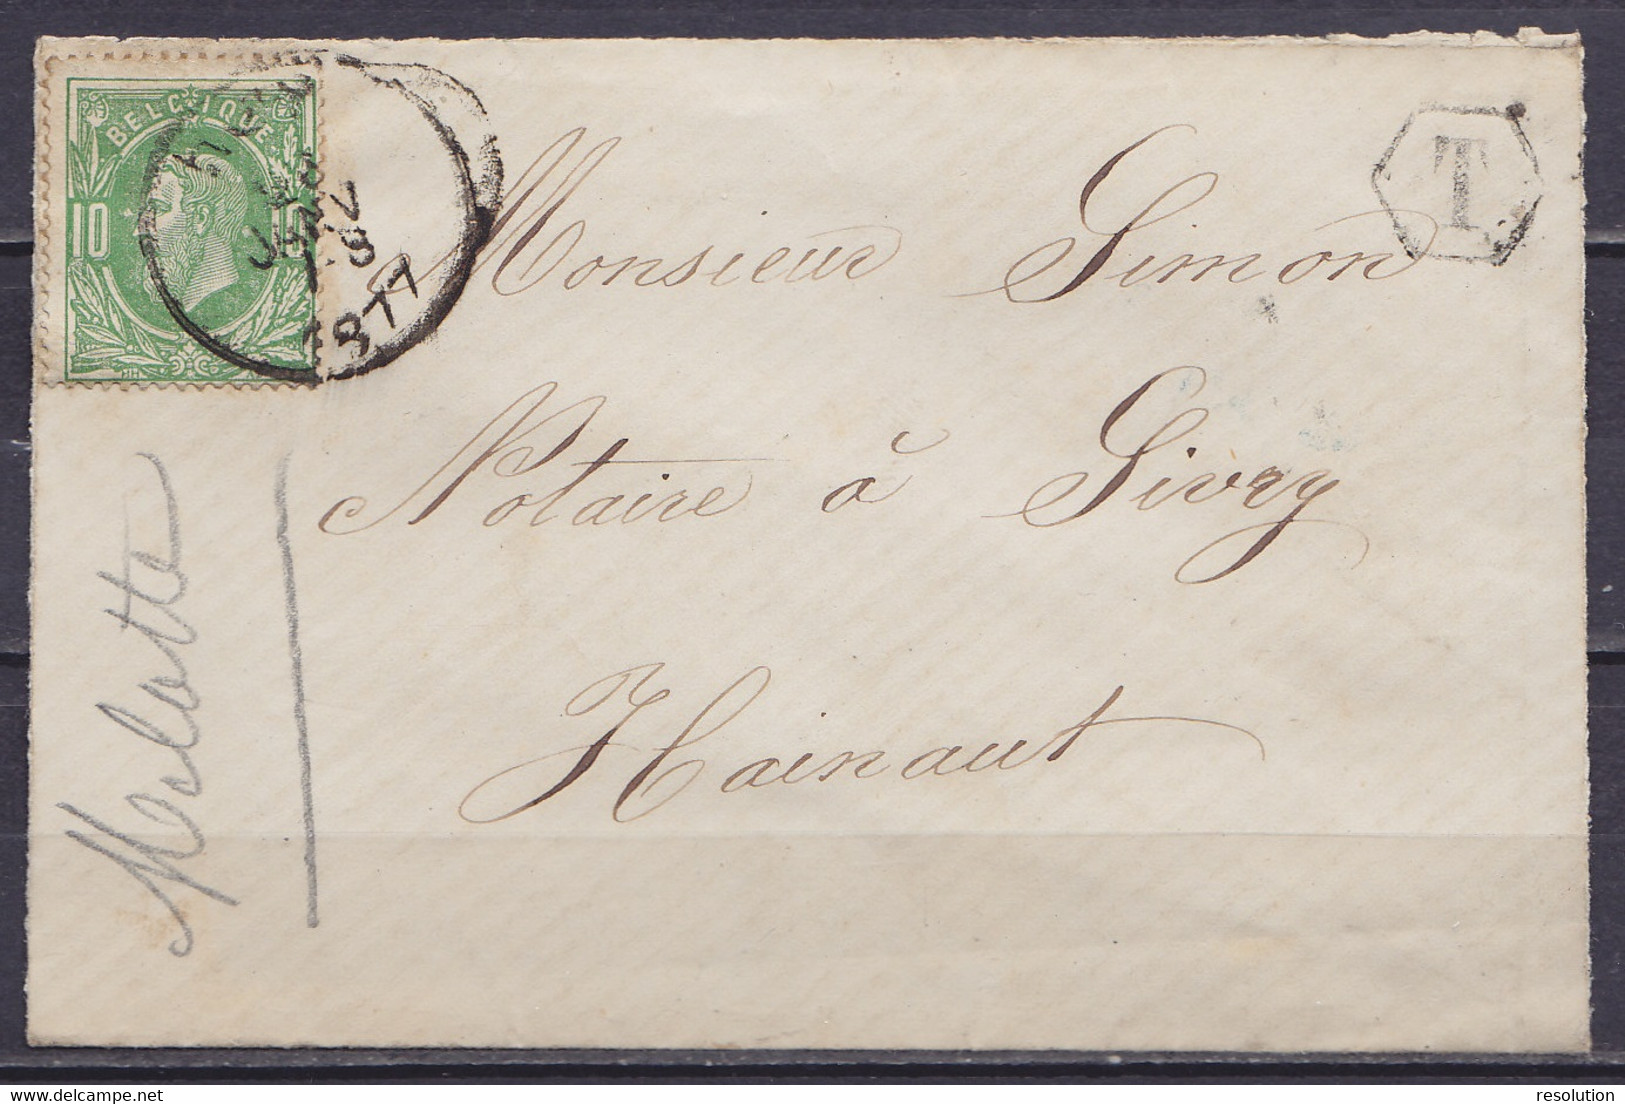 BELGIQUE
10 10
JANV
1877
T
Monsieur Simon
Notaire à Sivry
Hainaut
Melotte
www.delcampe.net
resolution